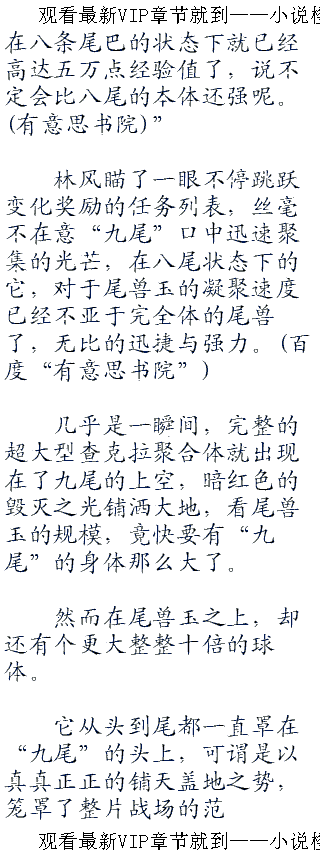 观看最新VIP章节就到——小说检
在八条尾巴的状态下就已经
高达五万点经验值了，说不
定会比八尾的本体还强呢。
(有意思书院)”
林风瞄了一眼不停跳跃
变化奖励的任务列表，丝毫
不在意“九尾”口中迅速聚
集的光芒，在八尾状态下的
它，对于尾兽玉的凝聚速度
已经不亚于完全体的尾兽
了，无比的迅捷与强力。(百
度“有意思书院”)
几乎是一瞬间，完整的
超大型查克拉聚合体就出现
在了九尾的上空，暗红色的
毁灭之光铺洒大地，看尾兽
玉的规模，竟快要有“九
尾”的身体那么大了。
然而在尾兽玉之上，却
还有个更大整整十倍的球
体。
它从头到尾都一直罩在
“九尾”的头上，可谓是以
真真正正的铺天盖地之势，
笼罩了整片战场的范
观看最新VIP章节就到——小说检